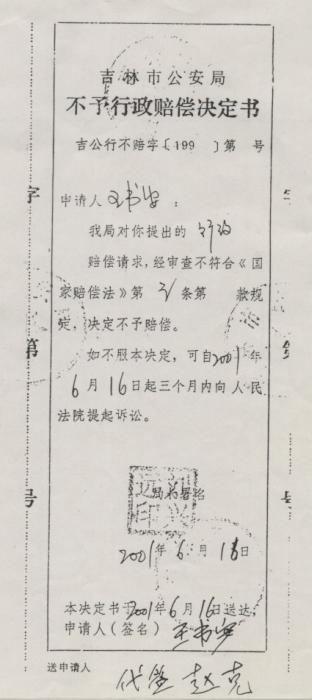 吉林市公安局
不予行政赔偿决定书
吉公行不赔字〔199 〕第 号
申请人王书安：
我局对你提出的行政
赔偿请求，经审查不符合《国
家赔偿法》第 条第 款规
定，决定不予赔偿。
如不服本决定，可自2001年
6月16日起三个月内向人民
法院提起诉讼。
局长署名
2001年6月16日
本决定书于2001年6月16日送达，
申请人（签名）王书安
送申请人
代签
字
第
号